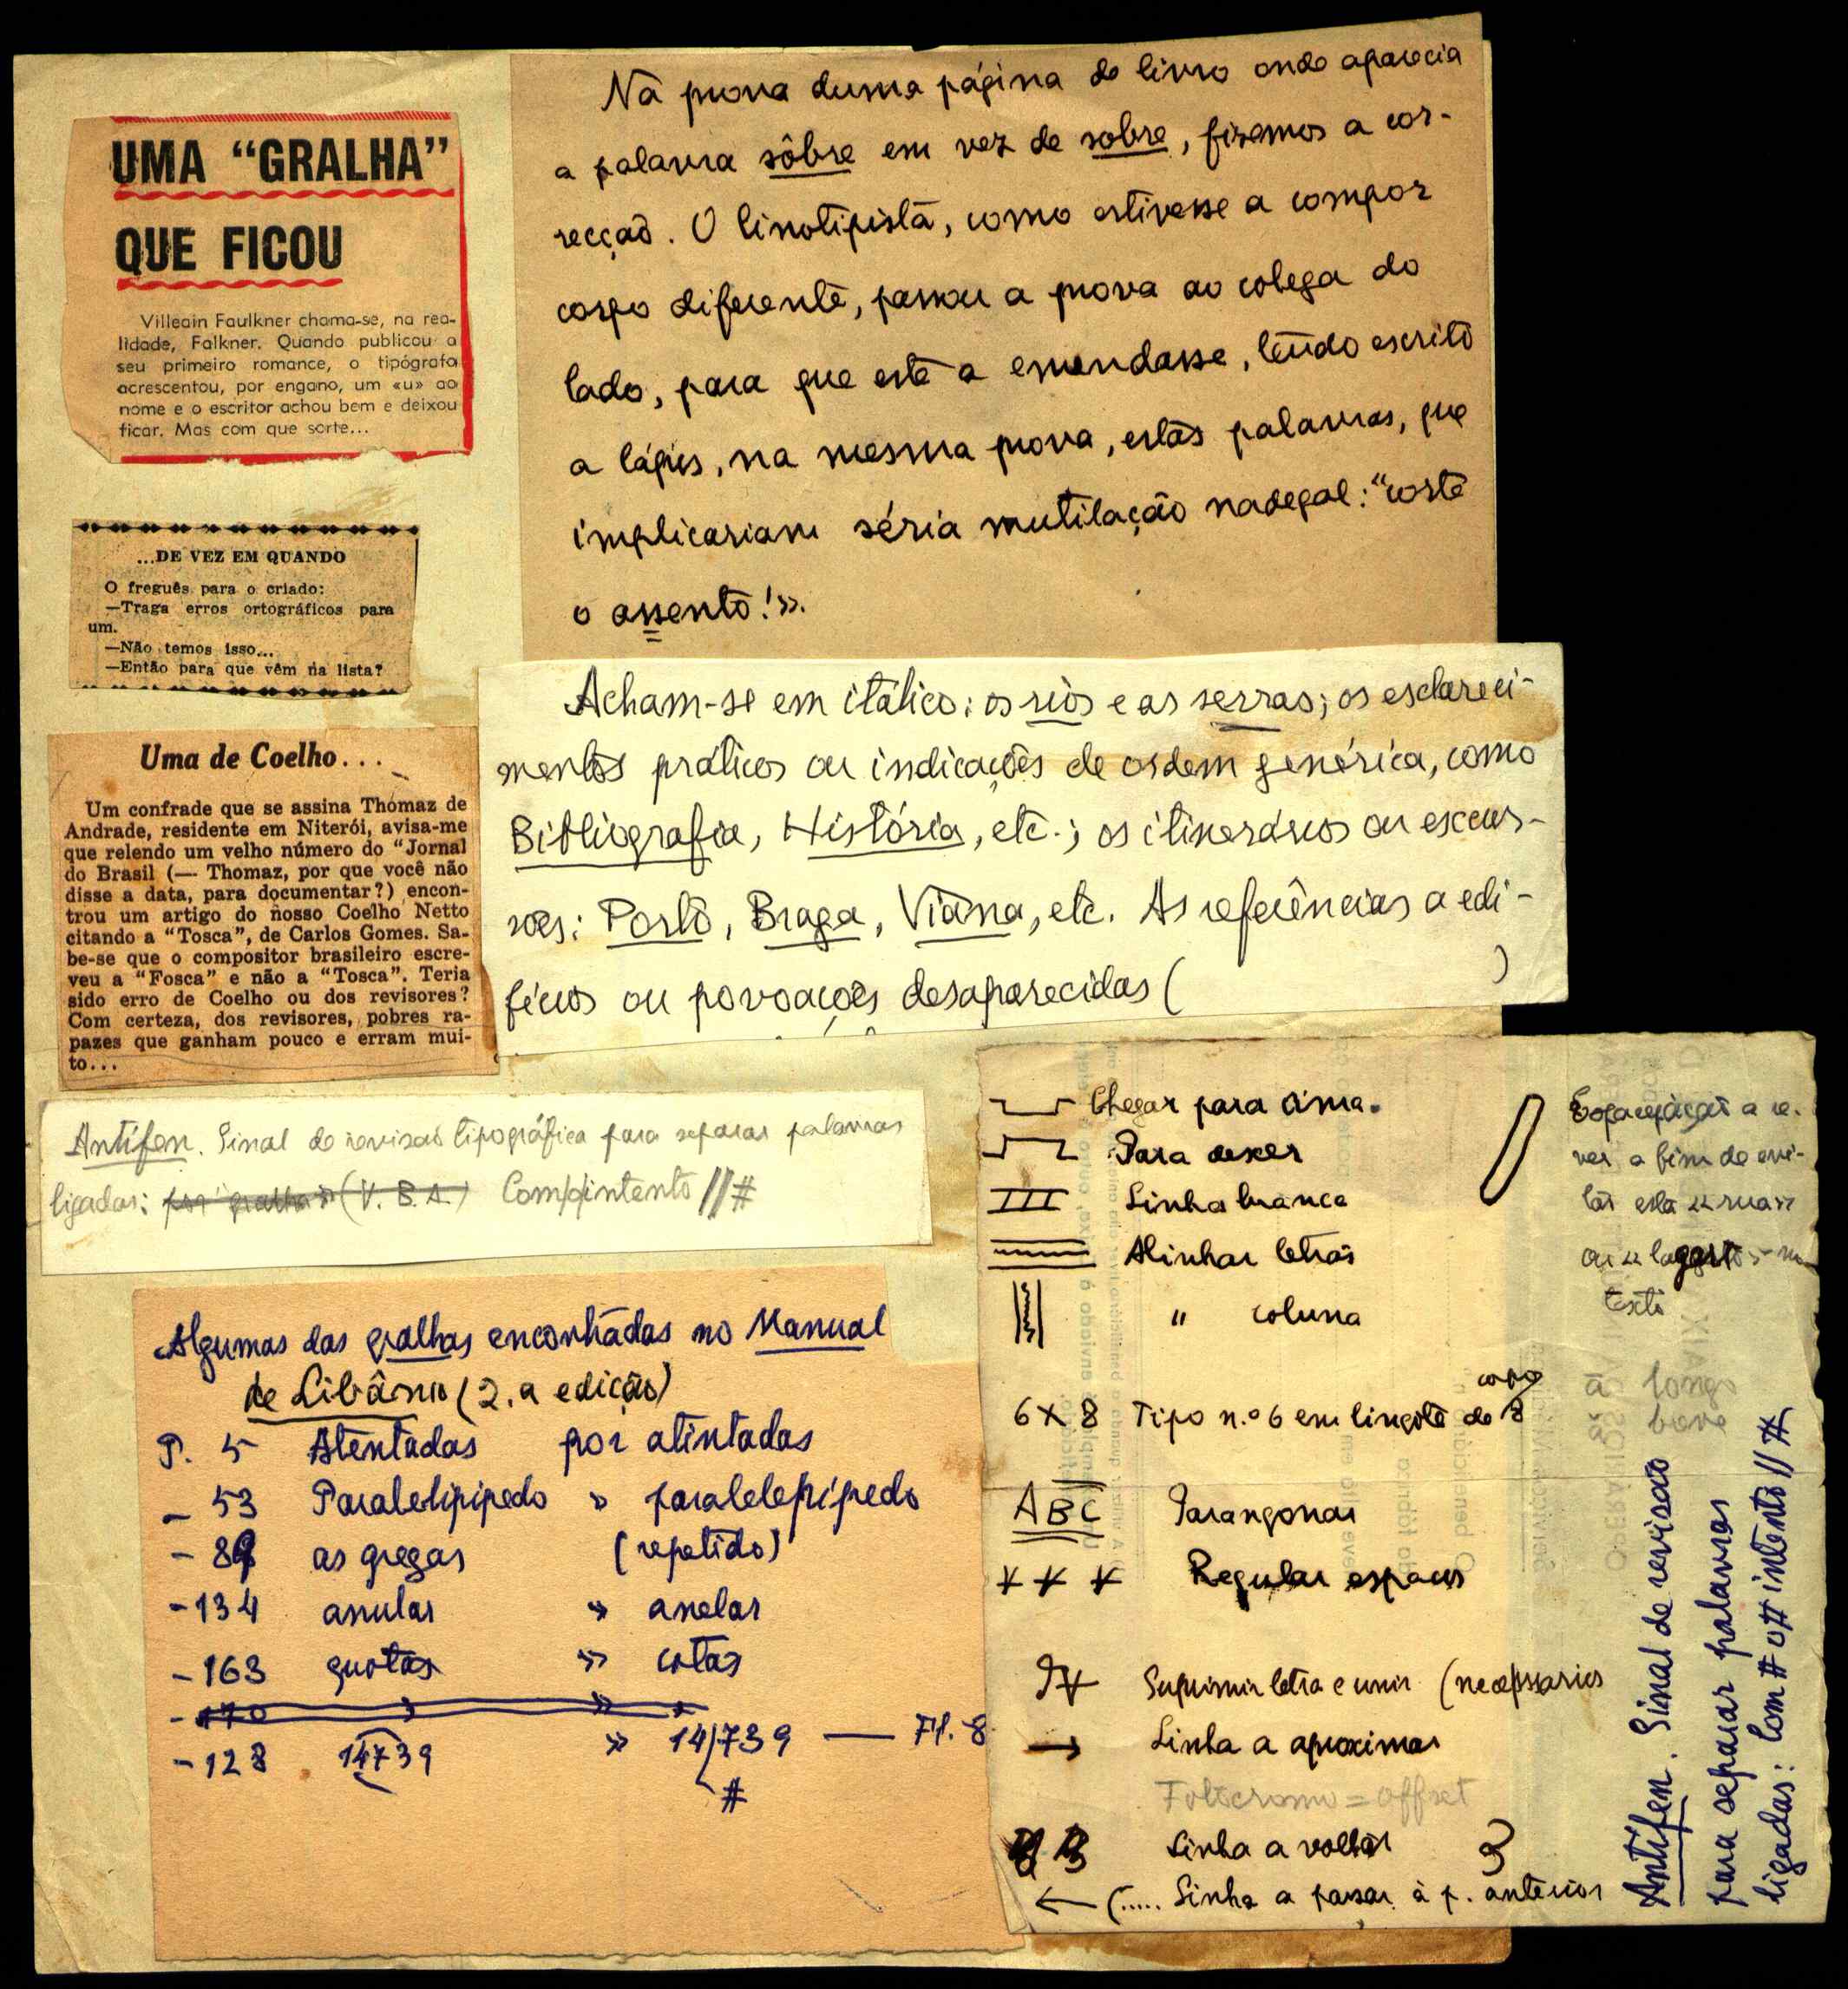 UMA “GRALHA”
QUE FICOU
Villeain Faulkner chama-se, na rea-
lidade, Falkner. Quando publicou o
seu primeiro romance, o tipógrafo
acrescentou, por engano, um «u» ao
nome e o escritor achou bem e deixou
ficar. Mas com que sorte...
...DE VEZ EM QUANDO
O freguês para o criado:
—Traga erros ortográficos para
um.
—Não temos isso...
—Então para que vêm na lista?
Uma de Coelho...
Um confrade que se assina Thomaz de
Andrade, residente em Niterói, avisa-me
que relendo um velho número do “Jornal
do Brasil (— Thomaz, por que você não
disse a data, para documentar?) encon-
trou um artigo do nosso Coelho Netto
citando a “Tosca”, de Carlos Gomes. Sa-
be-se que o compositor brasileiro escre-
veu a “Fosca” e não a “Tosca”. Teria
sido erro de Coelho ou dos revisores?
Com certeza, dos revisores, pobres ra-
pazes que ganham pouco e erram mui-
to...
Na prova duma página de livro onde aparecia
a palavra sôbre em vez de sobre, fizemos a cor-
recção. O linotipista, como estivesse a compor
corpo diferente, passou a prova ao colega do
lado, para que este a emendasse, tendo escrito
a lápis, na mesma prova, estas palavras, que
implicariam séria mutilação nadegal: “corte
o assento!».
Acham-se em itálico: os rios e as serras; os esclareci-
mentos práticos ou indicações de ordem genérica, como
Bibliografia, História, etc.; os itinerários ou excur-
sões: Porto, Braga, Viana, etc. As referências a edi-
fícios ou povoações desaparecidas ( )
Antífen. Sinal de revisão tipográfica para separar palavras
ligadas: por gralha (V. B. A.) Com/pintento //#
Algumas das gralhas encontradas no Manual
de Libânio (2.a edição)
P. 5 Atentadas por atintadas
- 53 Paralelipipedo » paralelepípedo
- 89 as gregas (repetido)
- 134 anular » anelar
- 163 quotas » cotas
- 170 »
- 128 14739 » 14/739 — Fl. 8
#
Chegar para cima.
Para descer
Linha branca
Alinhar letras
" coluna
6 X 8 Tipo n.º 6 em lingote de corpo 8
ABC Parangonar
Regular espaços
Suprimir letra e unir (necessários
→ Linha a aproximar
Fotocromo = offset
Linha a voltar
← (..... Linha a passar à p. anterior
a re-
ver a fim de evi-
tar esta «rua»
ou «lagarto» no
texto
longa
breve
Antífen. Sinal de revisão
para separar palavras
ligadas: Com # o # intento // #